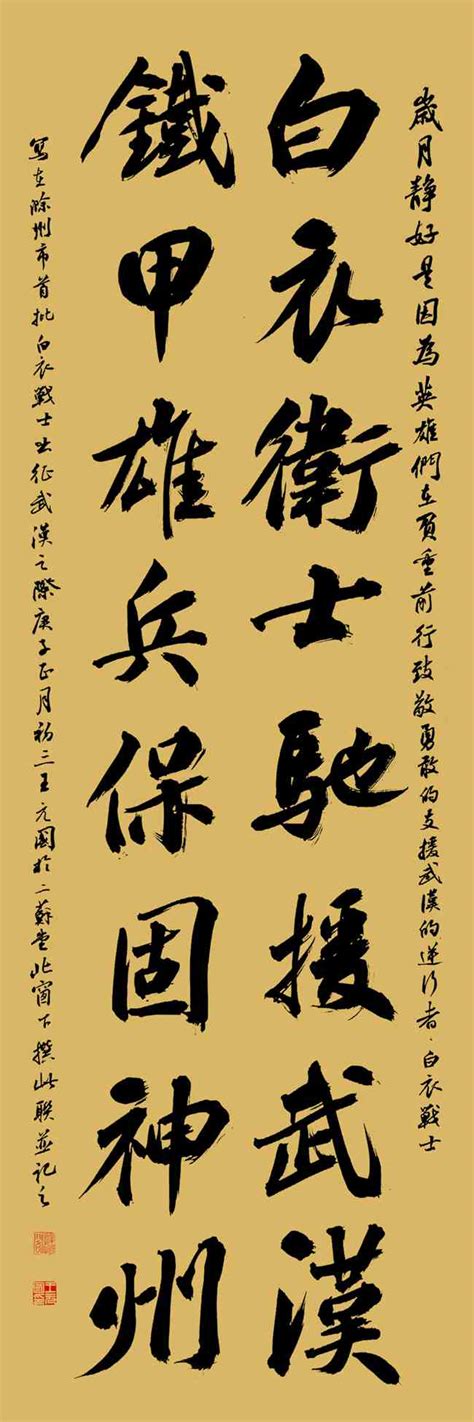 歲月靜好是因為英雄們在負重前行致敬勇敢的支援武漢的逆行者·白衣戰士
白衣衛士馳援武漢
鐵甲雄兵保固神州
寫在滁州市首批白衣戰士出征武漢之際庚子正月初三王元國於二蘇堂北窗下撰此聯並記之